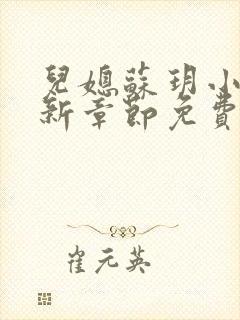 兒媳蘇玥小
新章節免費
崔元英